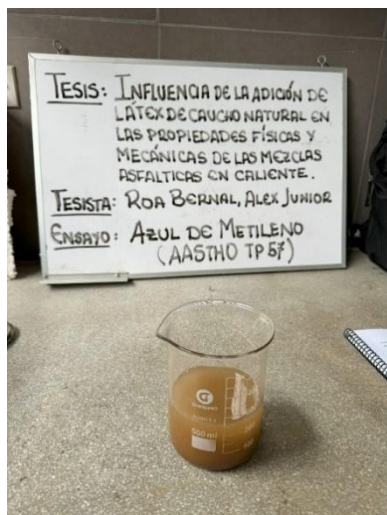 TESIS: INFLUENCIA DE LA ADICIÓN DE
LÁTEX DE CAUCHO NATURAL EN
LAS PROPIEDADES FÍSICAS Y
MECÁNICAS DE LAS MEZCLAS
ASFALTICAS EN CALIENTE.
TESISTA: ROA BERNAL, ALEX JUNIOR
ENSAYO: AZUL DE METILENO
(AASTHO TP 57)
500 ml